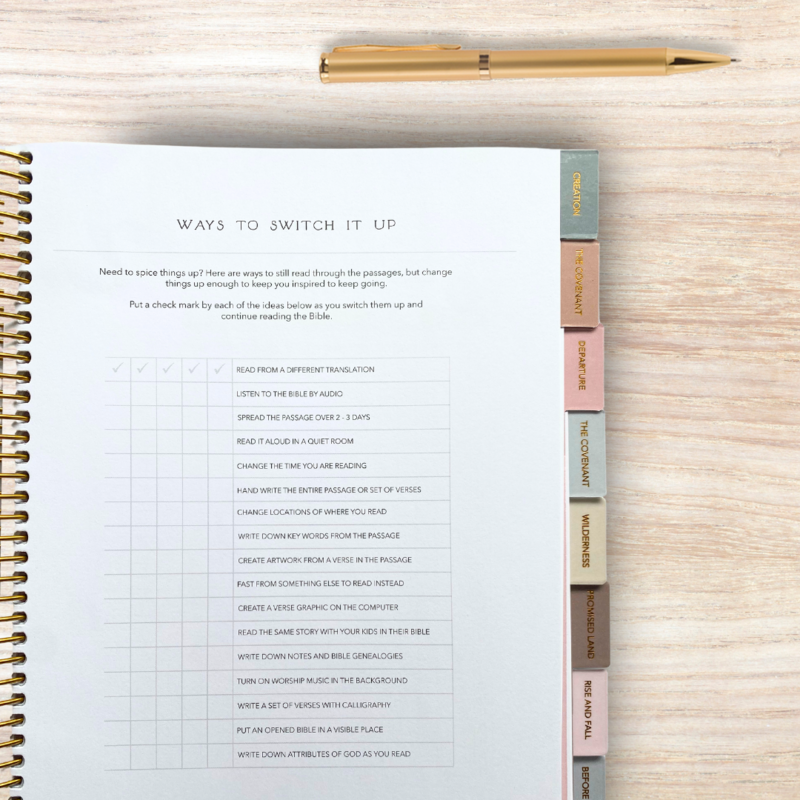 WAYS TO SWITCH IT UP
Need to spice things up? Here are ways to still read through the passages, but change
things up enough to keep you inspired to keep going.
Put a check mark by each of the ideas below as you switch them up and
continue reading the Bible.
READ FROM A DIFFERENT TRANSLATION
LISTEN TO THE BIBLE BY AUDIO
SPREAD THE PASSAGE OVER 2 - 3 DAYS
READ IT ALOUD IN A QUIET ROOM
CHANGE THE TIME YOU ARE READING
HAND WRITE THE ENTIRE PASSAGE OR SET OF VERSES
CHANGE LOCATIONS OF WHERE YOU READ
WRITE DOWN KEY WORDS FROM THE PASSAGE
CREATE ARTWORK FROM A VERSE IN THE PASSAGE
FAST FROM SOMETHING ELSE TO READ INSTEAD
CREATE A VERSE GRAPHIC ON THE COMPUTER
READ THE SAME STORY WITH YOUR KIDS IN THEIR BIBLE
WRITE DOWN NOTES AND BIBLE GENEALOGIES
TURN ON WORSHIP MUSIC IN THE BACKGROUND
WRITE A SET OF VERSES WITH CALLIGRAPHY
PUT AN OPENED BIBLE IN A VISIBLE PLACE
WRITE DOWN ATTRIBUTES OF GOD AS YOU READ
CREATION
THE COVENANT
DEPARTURE
THE COVENANT
WILDERNESS
PROMISED LAND
RISE AND FALL
BEFORE